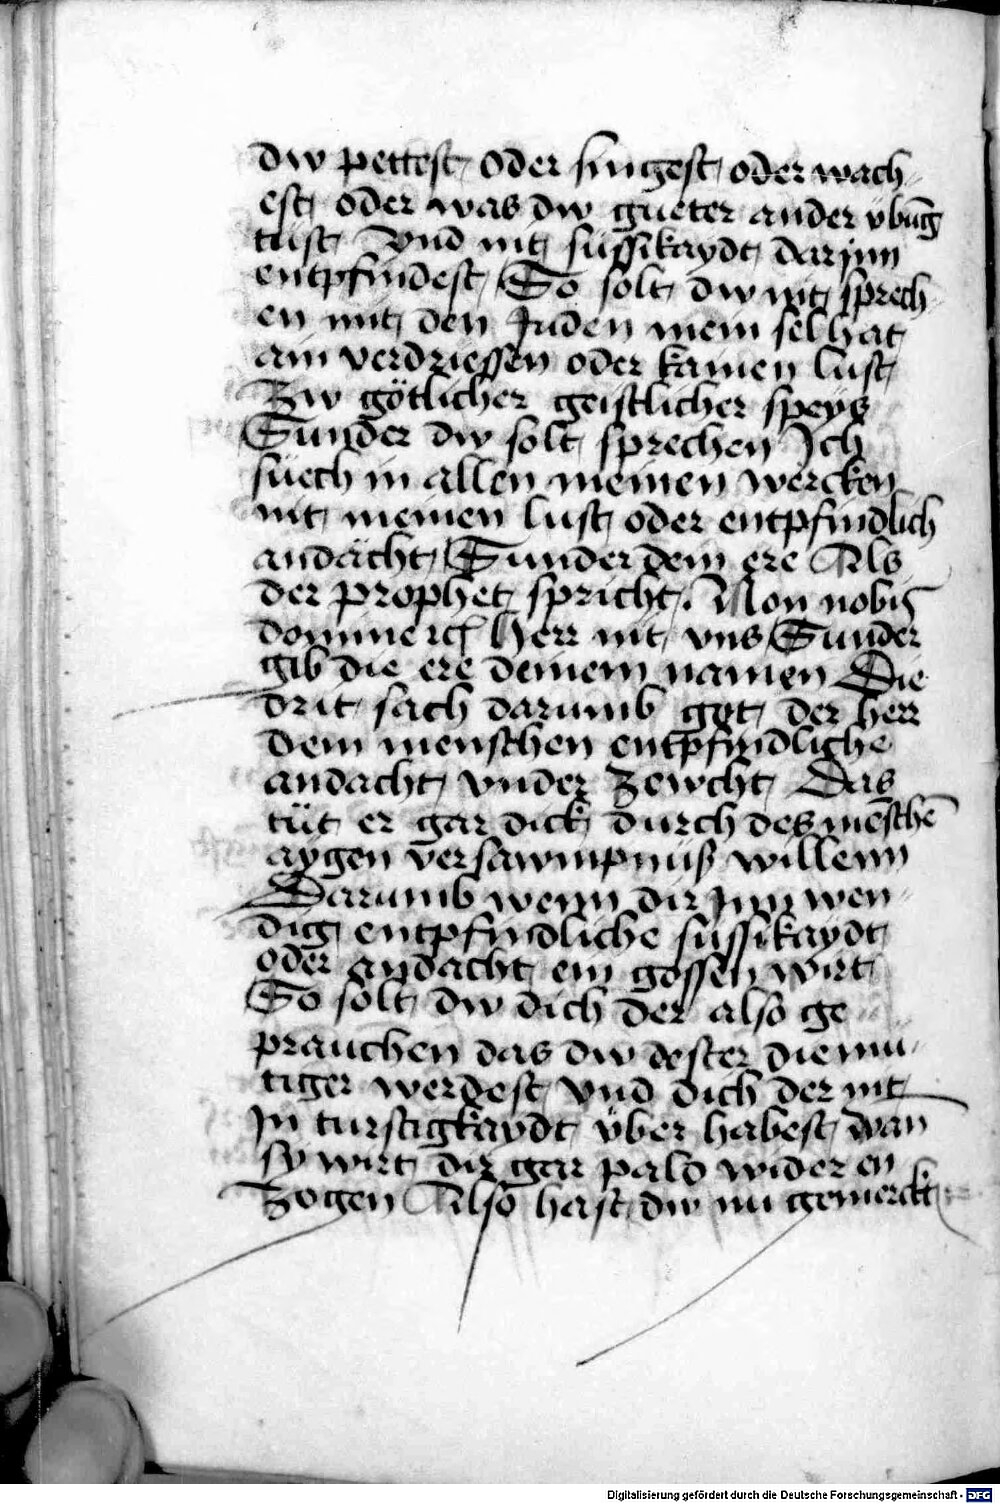 dw pettest oder singest oder wach
est oder was dw gueter ander vbūg
tust Vnd nit süssikaydt darjnn
entpfindest So solt dw nit sprech
en mit den Juden mein sel hat
ain verdriessen oder kainen lust
Zw götlicher geistlicher speys
Sunder dw solt sprechen Ich
suech in allen meinen wercken
nit meinen lust oder entpfindlich
andächt Sunder dein ere Als
der prophet spricht. Non nobis
domine rc̄ Herr nit vns Sunder
gib die ere deinem namen Die
drit sach darumb got der herr
dem menschen entpfindliche
andacht vnder zewcht Das
tüt er gar dick durch des mēschē
aygen versawmpnüß willenn
Darumb wenn dir Inn wen
dig entpfindliche sussikaydt
oder andacht ein gossen wirt
So solt dw dich der also ge
prauchen das dw dester diemu
tiger werdest vnd dich der nit
In turstigkaydt über habest wan
sy wirt dir gar pald wider en
Zogen Also hast dw nu gemerckt
Digitalisierung gefördert durch die Deutsche Forschungsgemeinschaft - DFG